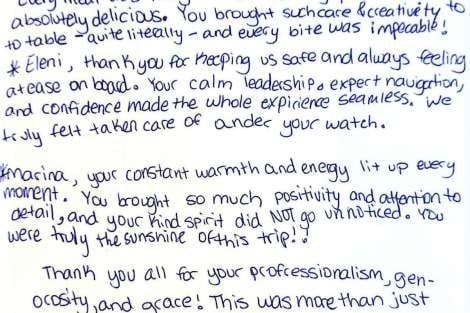 absolutely delicious. You brought such care & creativity to
to table - quite literally - and every bite was impecable!
* Eleni, thank you for keeping us safe and always feeling
at ease on board. Your calm leadership, expert navigation,
and confidence made the whole expirience seamless. We
truly felt taken care of under your watch.
*Marina, your constant warmth and energy lit up every
moment. You brought so much positivity and attention to
detail, and your kind spirit did NOT go unnoticed. You
were truly the sunshine of this trip!!
Thank you all for your profcessionalism, gen-
orosity, and grace! This was more than just